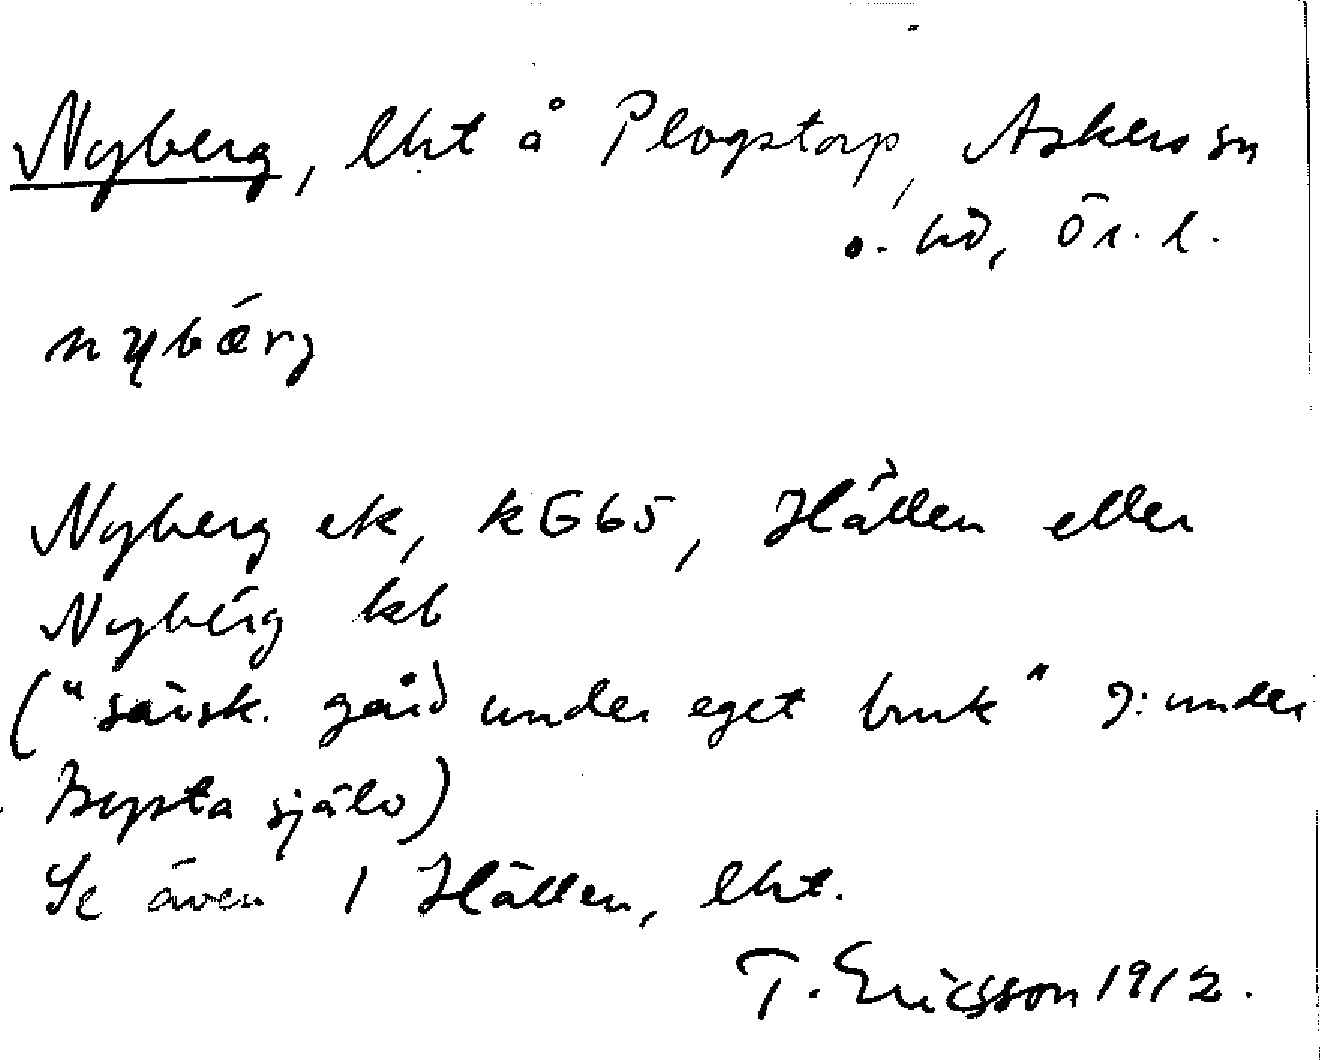 Nyberg, lht å Plogstorp, Askers sn
o. hd, Ör. l.
nybǽrg
Nyberg ek, kG65, Hällen eller
Nybérg kb
("särsk. gård under eget bruk" ɔ: under
Brysta själv)
Se även 1 Hällen, lht.
T. Ericsson 1912.